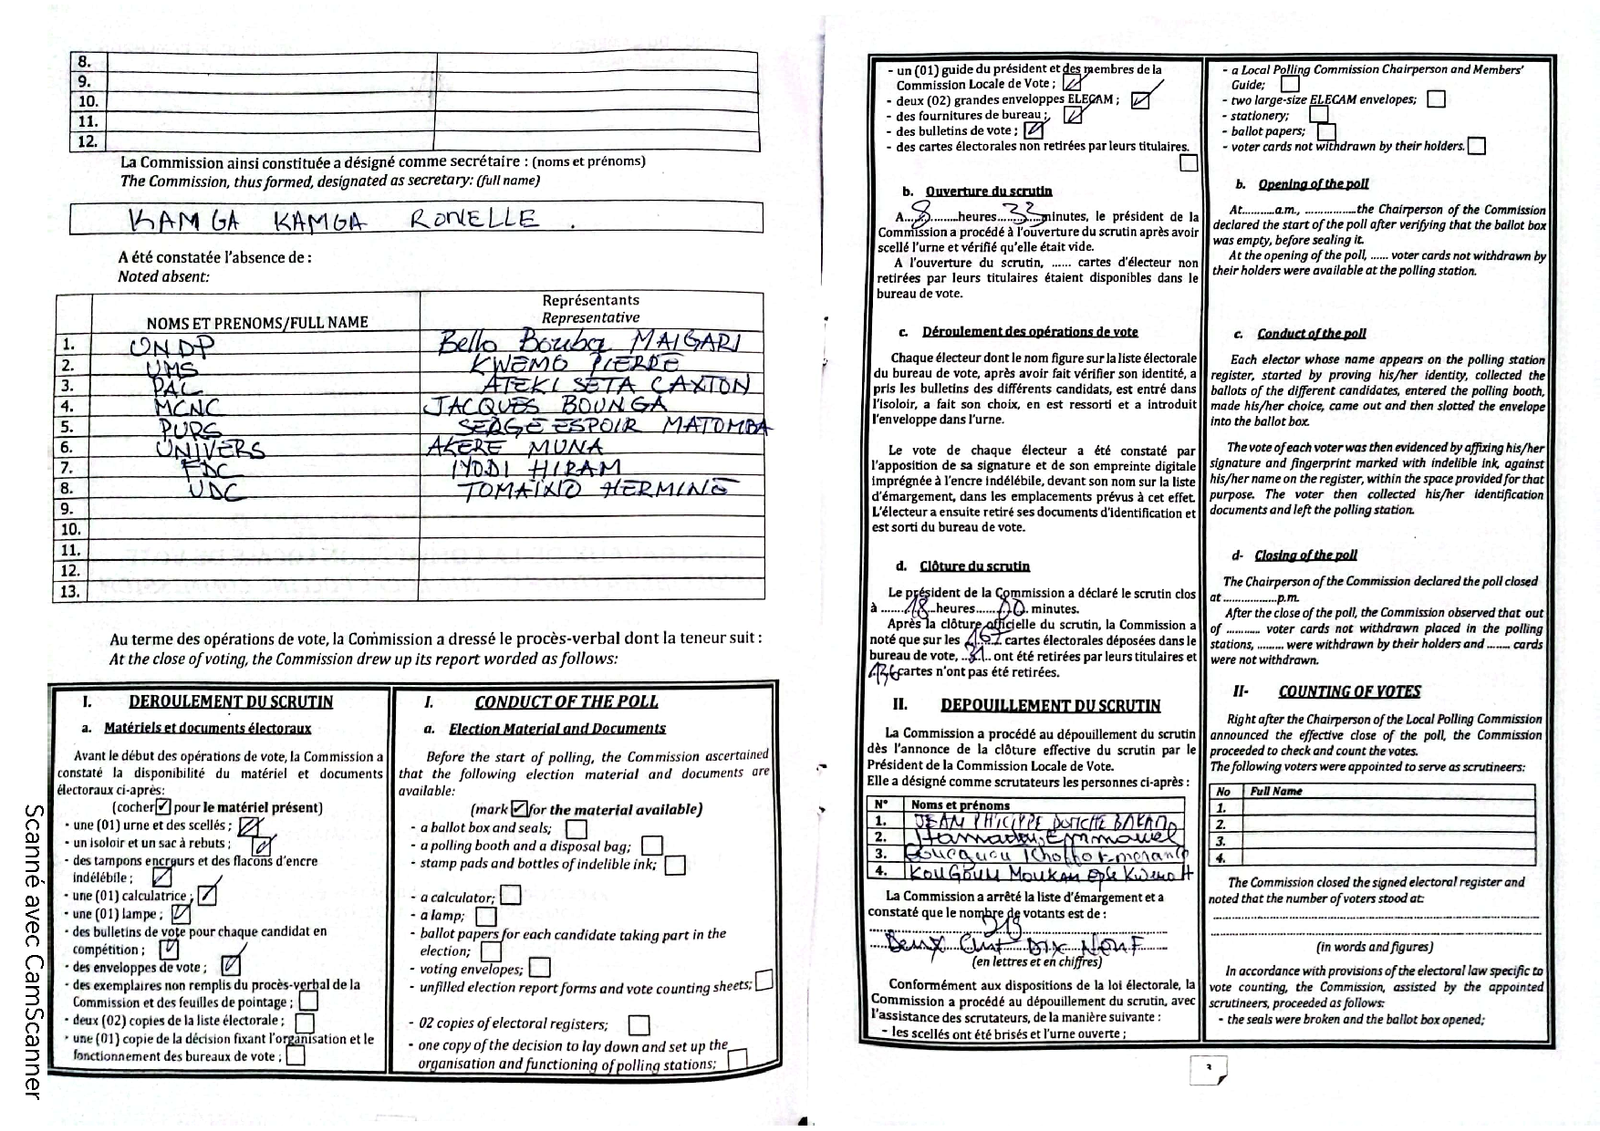 8.
9.
10.
11.
12.
La Commission ainsi constituée a désigné comme secrétaire : (noms et prénoms)
The Commission, thus formed, designated as secretary: (full name)
KAMGA KAMGA RONELLE .
A été constatée l'absence de :
Noted absent:
NOMS ET PRENOMS/FULL NAME
Représentants
Representative
1. UNDP Bello Bouba MAIGARI
2. UMS KWEMO PIERRE
3. PAL ATEKI SETA CAXTON
4. MCNC JACQUES BOUNGA
5. PURS SERGE ESPOIR MATOMBA
6. UNIVERS AKERE MUNA
7. FDC IYODI HIRAM
8. UDC TOMAINO HERMINE
9.
10.
11.
12.
13.
Au terme des opérations de vote, la Commission a dressé le procès-verbal dont la teneur suit :
At the close of voting, the Commission drew up its report worded as follows:
I. DEROULEMENT DU SCRUTIN
a. Matériels et documents électoraux
Avant le début des opérations de vote, la Commission a
constaté la disponibilité du matériel et documents
électoraux ci-après:
(cocher ☑ pour le matériel présent)
- une (01) urne et des scellés ; ☑
- un isoloir et un sac à rebuts ; ☑
- des tampons encreurs et des flacons d'encre
indélébile ; ☑
- une (01) calculatrice ; ☑
- une (01) lampe ; ☑
- des bulletins de vote pour chaque candidat en
compétition ; ☑
- des enveloppes de vote ; ☑
- des exemplaires non remplis du procès-verbal de la
Commission et des feuilles de pointage ; ☐
- deux (02) copies de la liste électorale ; ☐
- une (01) copie de la décision fixant l'organisation et le
fonctionnement des bureaux de vote ; ☐
I. CONDUCT OF THE POLL
a. Election Material and Documents
Before the start of polling, the Commission ascertained
that the following election material and documents are
available:
(mark ☑ for the material available)
- a ballot box and seals; ☐
- a polling booth and a disposal bag; ☐
- stamp pads and bottles of indelible ink; ☐
- a calculator; ☐
- a lamp; ☐
- ballot papers for each candidate taking part in the
election; ☐
- voting envelopes; ☐
- unfilled election report forms and vote counting sheets; ☐
- 02 copies of electoral registers; ☐
- one copy of the decision to lay down and set up the
organisation and functioning of polling stations; ☐
Scanné avec CamScanner
- un (01) guide du président et des membres de la
Commission Locale de Vote ; ☑
- deux (02) grandes enveloppes ELECAM ; ☑
- des fournitures de bureau ; ☑
- des bulletins de vote ; ☑
- des cartes électorales non retirées par leurs titulaires.
☐
b. Ouverture du scrutin
A...8...heures...33...minutes, le président de la
Commission a procédé à l'ouverture du scrutin après avoir
scellé l'urne et vérifié qu'elle était vide.
A l'ouverture du scrutin, ...... cartes d'électeur non
retirées par leurs titulaires étaient disponibles dans le
bureau de vote.
c. Déroulement des opérations de vote
Chaque électeur dont le nom figure sur la liste électorale
du bureau de vote, après avoir fait vérifier son identité, a
pris les bulletins des différents candidats, est entré dans
l'isoloir, a fait son choix, en est ressorti et a introduit
l'enveloppe dans l'urne.
Le vote de chaque électeur a été constaté par
l'apposition de sa signature et de son empreinte digitale
imprégnée à l'encre indélébile, devant son nom sur la liste
d'émargement, dans les emplacements prévus à cet effet.
L'électeur a ensuite retiré ses documents d'identification et
est sorti du bureau de vote.
d. Clôture du scrutin
Le président de la Commission a déclaré le scrutin clos
à ......18..heures......00. minutes.
Après la clôture officielle du scrutin, la Commission a
noté que sur les 167 cartes électorales déposées dans le
bureau de vote, ..31.. ont été retirées par leurs titulaires et
136 cartes n'ont pas été retirées.
II. DEPOUILLEMENT DU SCRUTIN
La Commission a procédé au dépouillement du scrutin
dès l'annonce de la clôture effective du scrutin par le
Président de la Commission Locale de Vote.
Elle a désigné comme scrutateurs les personnes ci-après :
N° Noms et prénoms
1. JEAN PHILIPPE
2. Hamadou Emmanuel
3.
4. KOUGOUM MOUKAM Epse
La Commission a arrêté la liste d'émargement et a
constaté que le nombre de votants est de :
219
Deux Cent Dix Neuf
(en lettres et en chiffres)
Conformément aux dispositions de la loi électorale, la
Commission a procédé au dépouillement du scrutin, avec
l'assistance des scrutateurs, de la manière suivante :
- les scellés ont été brisés et l'urne ouverte ;
- a Local Polling Commission Chairperson and Members'
Guide; ☐
- two large-size ELECAM envelopes; ☐
- stationery; ☐
- ballot papers; ☐
- voter cards not withdrawn by their holders. ☐
b. Opening of the poll
At...........a.m., .................the Chairperson of the Commission
declared the start of the poll after verifying that the ballot box
was empty, before sealing it.
At the opening of the poll, ...... voter cards not withdrawn by
their holders were available at the polling station.
c. Conduct of the poll
Each elector whose name appears on the polling station
register, started by proving his/her identity, collected the
ballots of the different candidates, entered the polling booth,
made his/her choice, came out and then slotted the envelope
into the ballot box.
The vote of each voter was then evidenced by affixing his/her
signature and fingerprint marked with indelible ink, against
his/her name on the register, within the space provided for that
purpose. The voter then collected his/her identification
documents and left the polling station.
d- Closing of the poll
The Chairperson of the Commission declared the poll closed
at ..................p.m.
After the close of the poll, the Commission observed that out
of ........... voter cards not withdrawn placed in the polling
stations, ......... were withdrawn by their holders and ........ cards
were not withdrawn.
II- COUNTING OF VOTES
Right after the Chairperson of the Local Polling Commission
announced the effective close of the poll, the Commission
proceeded to check and count the votes.
The following voters were appointed to serve as scrutineers:
No Full Name
1.
2.
3.
4.
The Commission closed the signed electoral register and
noted that the number of voters stood at:
(in words and figures)
In accordance with provisions of the electoral law specific to
vote counting, the Commission, assisted by the appointed
scrutineers, proceeded as follows:
- the seals were broken and the ballot box opened;
3